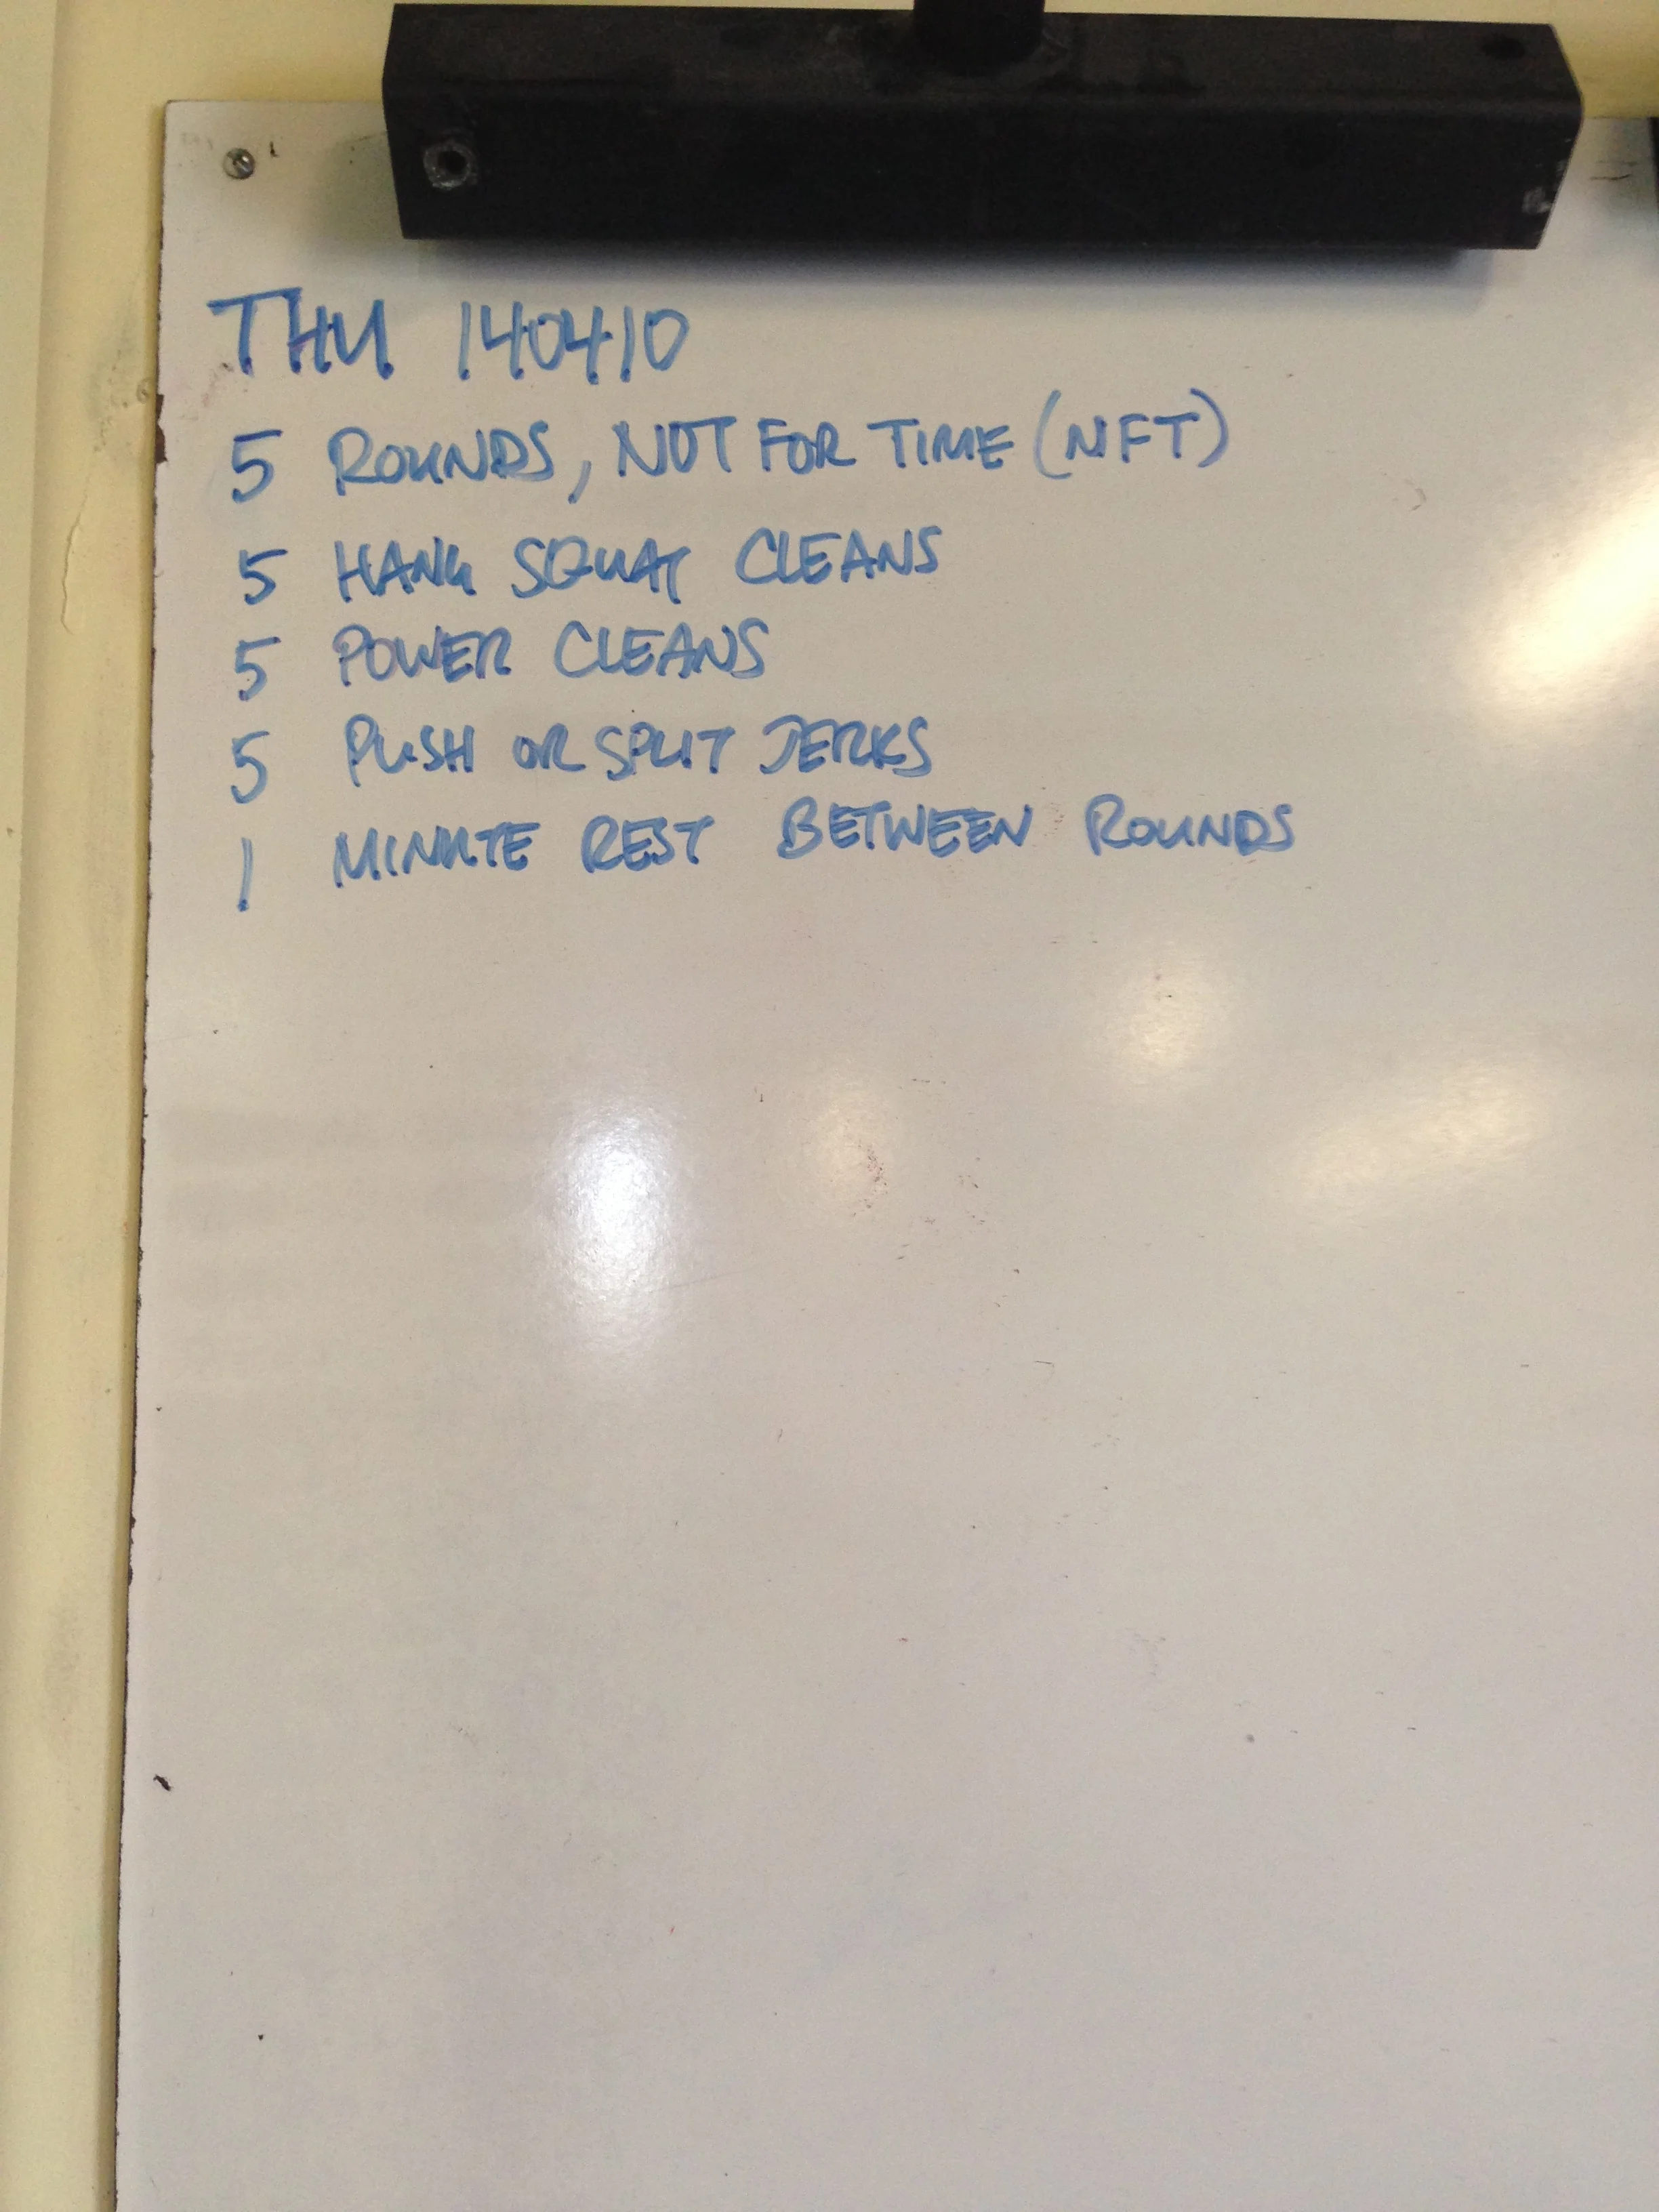 THU 140410
5 ROUNDS, NOT FOR TIME (NFT)
5 HANG SQUAT CLEANS
5 POWER CLEANS
5 PUSH OR SPLIT JERKS
1 MINUTE REST BETWEEN ROUNDS